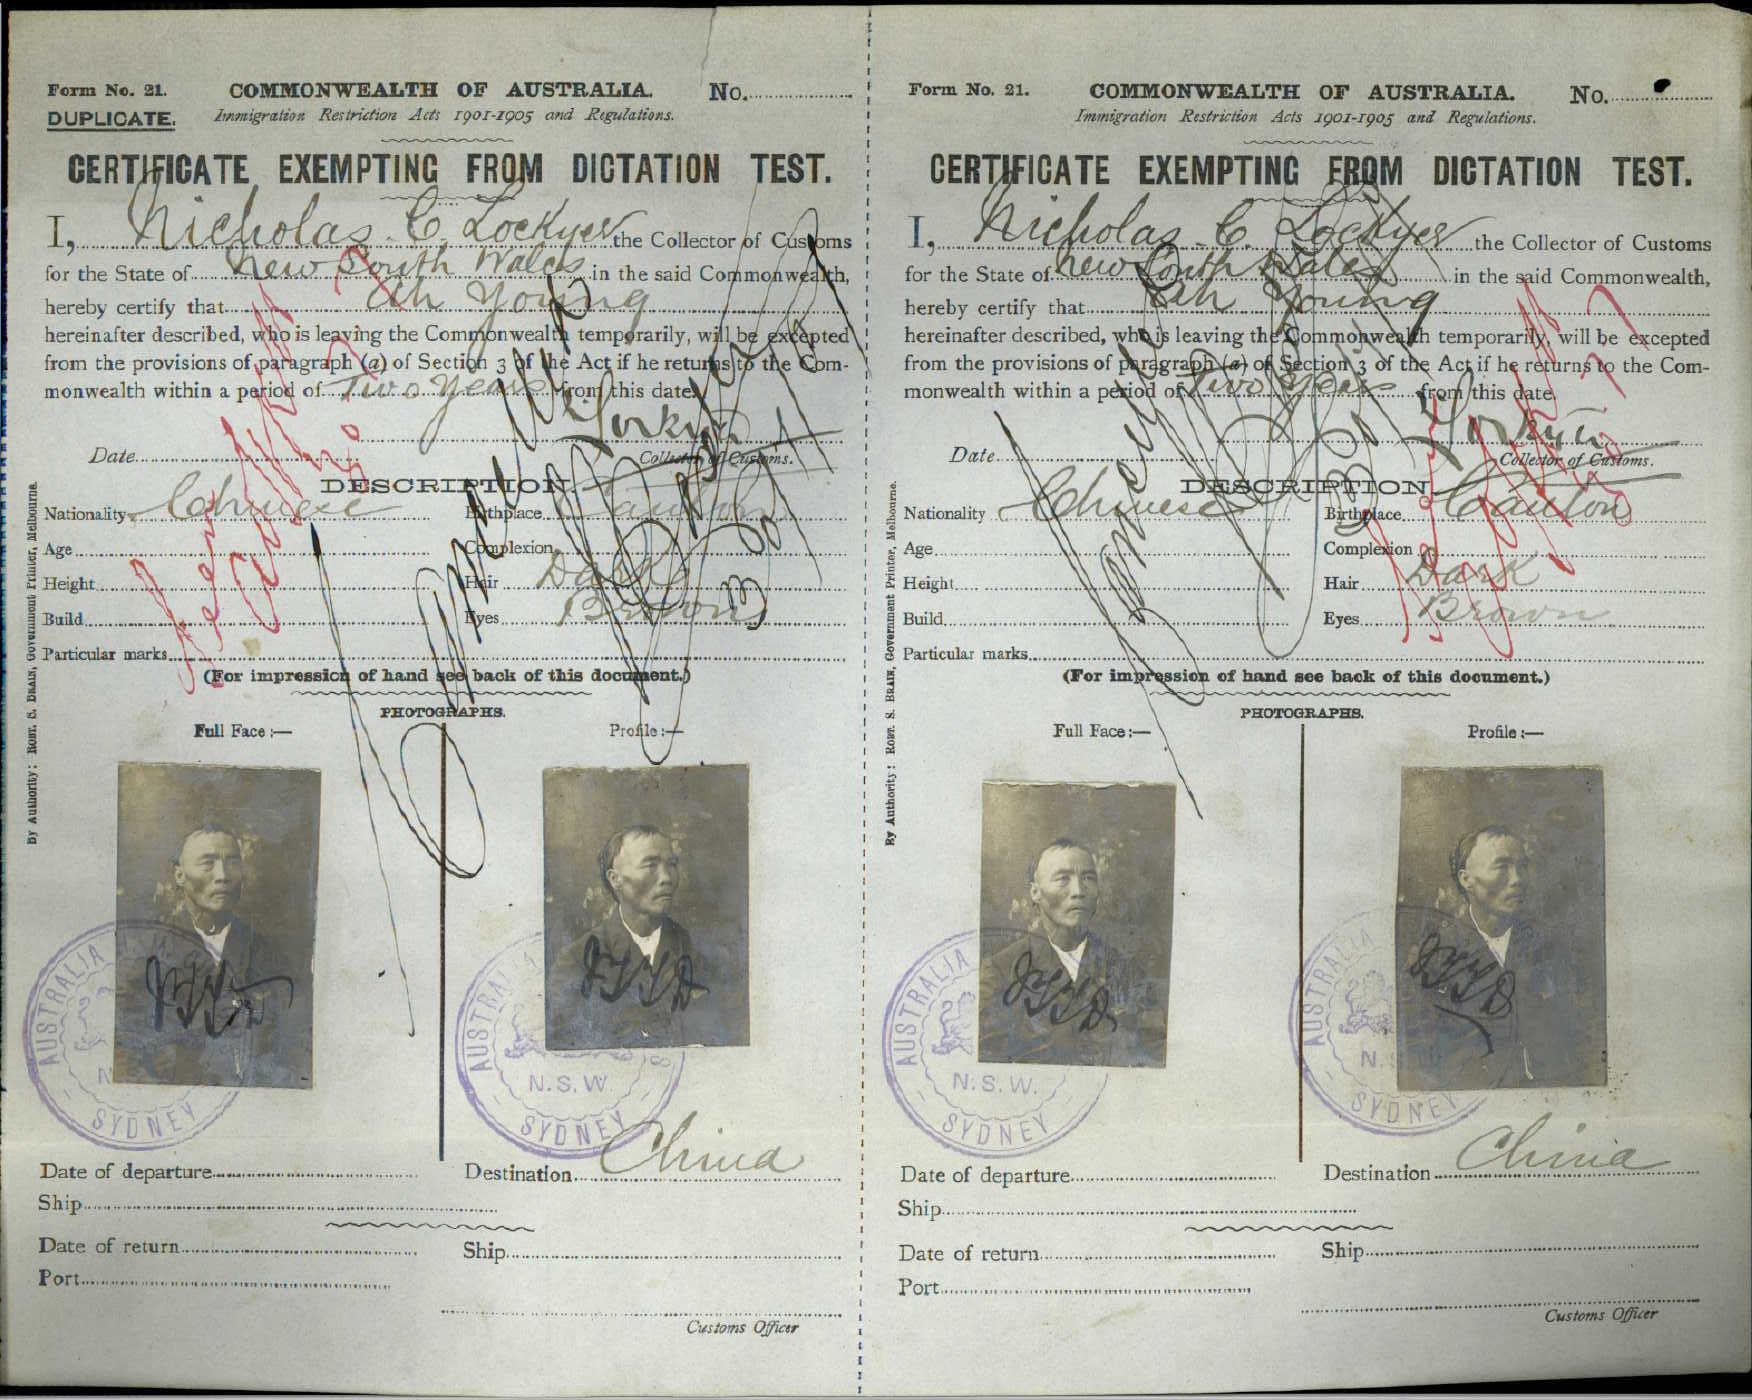 Form No. 21. COMMONWEALTH OF AUSTRALIA. No.
DUPLICATE. Immigration Restriction Acts 1901-1905 and Regulations.
CERTIFICATE EXEMPTING FROM DICTATION TEST.
I, Nicholas C. Lockyer the Collector of Customs
for the State of New South Wales in the said Commonwealth,
hereby certify that Ah Young
hereinafter described, who is leaving the Commonwealth temporarily, will be excepted
from the provisions of paragraph (a) of Section 3 of the Act if he returns to the Com-
monwealth within a period of Two Years from this date.
Lockyer
Date Collector of Customs.
DESCRIPTION
Nationality Chinese Birthplace Canton
Age Complexion
Height Hair Dark
Build Eyes Brown
Particular marks
(For impression of hand see back of this document.)
PHOTOGRAPHS.
Full Face :— Profile :—
By Authority: ROBT. S. BRAIN, Government Printer, Melbourne.
AUSTRALIA
N.S.W.
SYDNEY
AUSTRALIA
N.S.W.
SYDNEY
Date of departure Destination China
Ship
Date of return Ship
Port
Customs Officer
Form No. 21. COMMONWEALTH OF AUSTRALIA. No.
Immigration Restriction Acts 1901-1905 and Regulations.
CERTIFICATE EXEMPTING FROM DICTATION TEST.
I, Nicholas C. Lockyer the Collector of Customs
for the State of New South Wales in the said Commonwealth,
hereby certify that Ah Young
hereinafter described, who is leaving the Commonwealth temporarily, will be excepted
from the provisions of paragraph (a) of Section 3 of the Act if he returns to the Com-
monwealth within a period of Two Years from this date.
Lockyer
Date Collector of Customs.
DESCRIPTION
Nationality Chinese Birthplace Canton
Age Complexion
Height Hair Dark
Build Eyes Brown
Particular marks
(For impression of hand see back of this document.)
PHOTOGRAPHS.
Full Face :— Profile :—
By Authority: ROBT. S. BRAIN, Government Printer, Melbourne.
AUSTRALIA
N.S.W.
SYDNEY
AUSTRALIA
N.S.
SYDNEY
Date of departure Destination China
Ship
Date of return Ship
Port
Customs Officer